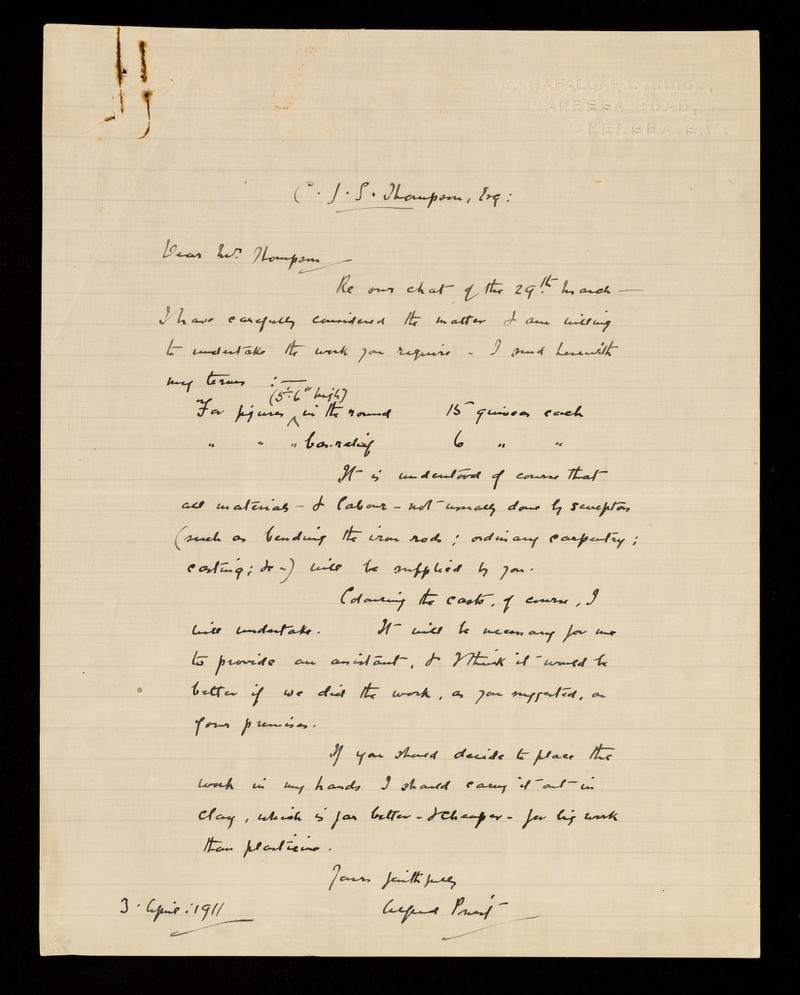 TRAFALGAR STUDIOS,
MANRESA ROAD,
CHELSEA, S.W.
C. J. S. Thompson, Esq:
Dear Mr. Thompson
Re our chat of the 29th March —
I have carefully considered the matter & am willing
to undertake the work you require - I send herewith
my terms :—
(5'-6" high)
For figures in the round 15 guineas each
" " " bas-relief 6 " "
It is understood of course that
all materials - & labour - not usually done by sculptors
(such as bending the iron rods ; ordinary carpentry ;
casting ; &c -) will be supplied by you.
Colouring the casts, of course, I
will undertake. It will be necessary for me
to provide an assistant, & I think it would be
better if we did the work, as you suggested, on
your premises.
If you should decide to place the
work in my hands I should carry it out in
clay, which is far better - & cheaper - for big work
than plasticine.
Yours faithfully
Alfred Priest
3 · April : 1911